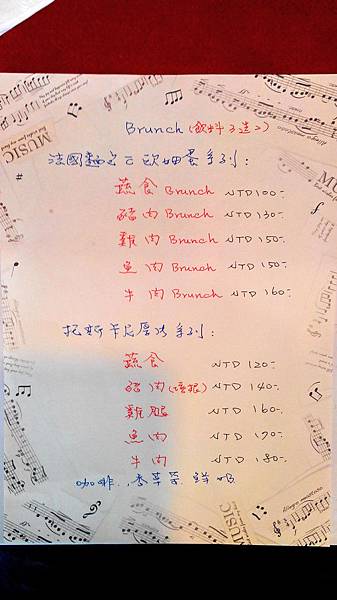 Brunch (飲料3選2)
法國麵包 歐姆蛋系列:
蔬食 Brunch NTD 100.-
豬肉 Brunch NTD 130.-
雞肉 Brunch NTD 150.-
魚肉 Brunch NTD 150.-
牛肉 Brunch NTD 160.-
托斯卡尼 系列:
蔬食 NTD 120.-
豬肉 NTD 140.-
雞腿 NTD 160.-
魚肉 NTD 170.-
牛肉 NTD 180.-
咖啡. 香草茶 鮮奶
MUSIC
MUSIC